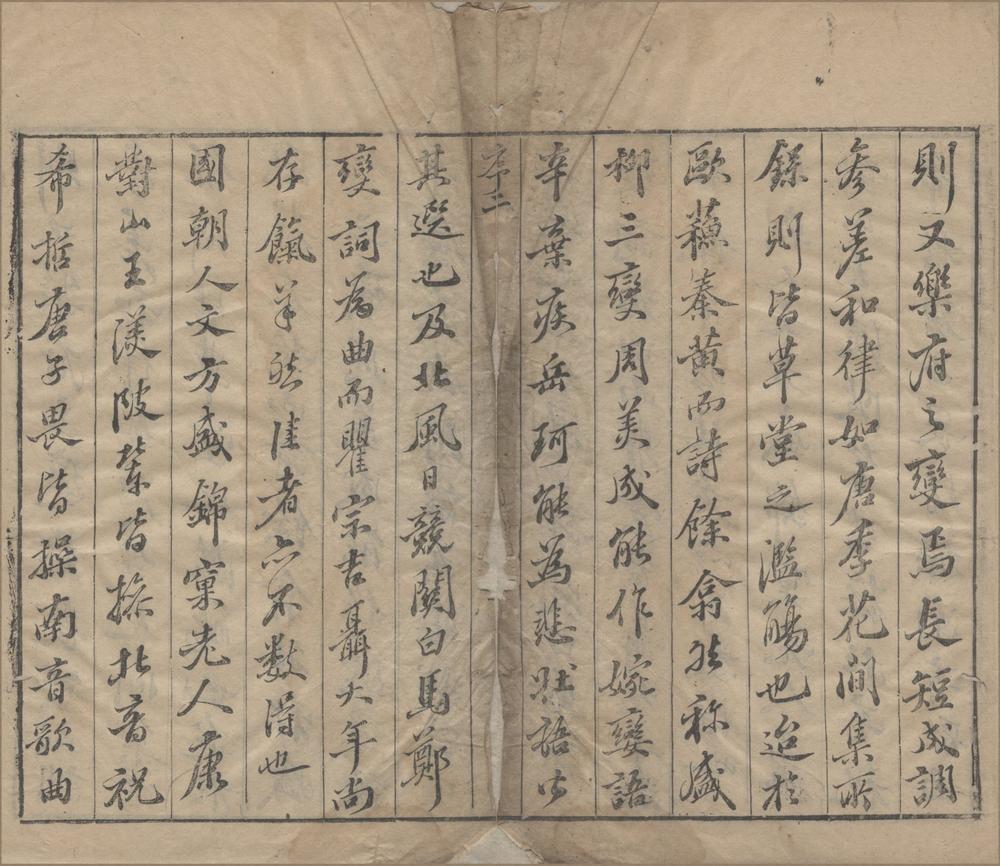 則又樂府之變焉長短成調
參差和律如唐季花間集所
錄則皆草堂之濫觴也迨於
歐蘇秦黄而詩餘翕然称盛
柳三變周美成能作婉孌語
辛棄疾岳珂能為悲壯語皆
序二
其選也及北風日競關白馬鄭
變詞為曲而瞿宗吉聶大年尚
存餼羊然佳者亦不数得也
國朝人文方盛錦窠老人康
對山王渼陂輩皆操北音祝
希哲唐子畏皆操南音歌曲